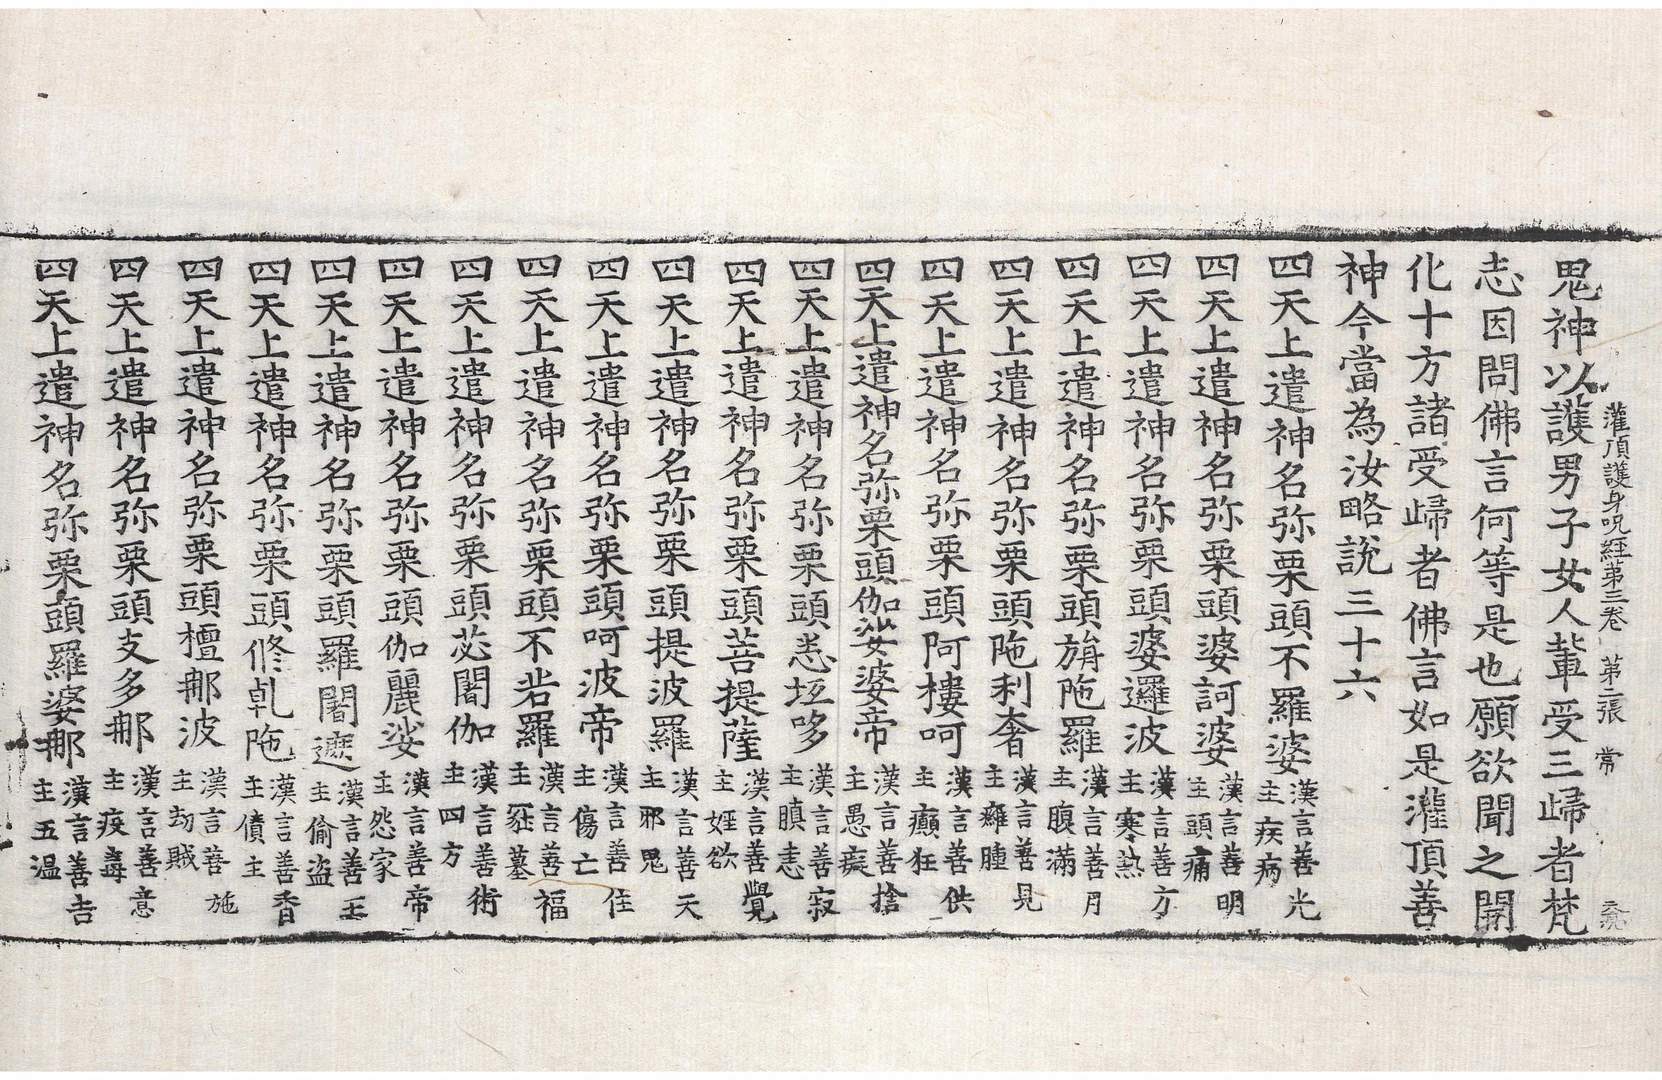 灌頂護身呪經第三卷 第二張 常
鬼神以護男子女人輩受三歸者梵
志因問佛言何等是也願欲聞之開
化十方諸受歸者佛言如是灌頂善
神今當為汝略說三十六
四天上遣神名弥栗頭不羅婆漢言善光主疾病
四天上遣神名弥栗頭婆訶婆漢言善明主頭痛
四天上遣神名弥栗頭婆邏波漢言善方主寒熱
四天上遣神名弥栗頭旃陁羅漢言善月主腹滿
四天上遣神名弥栗頭陁利奢漢言善見主癰腫
四天上遣神名弥栗頭阿樓呵漢言善供主癲狂
四天上遣神名弥栗頭伽娑婆帝漢言善捨主愚癡
四天上遣神名弥栗頭悉坘哆漢言善寂主瞋恚
四天上遣神名弥栗頭菩提薩漢言善覺主婬欲
四天上遣神名弥栗頭提波羅漢言善天主邪鬼
四天上遣神名弥栗頭呵波帝漢言善住主傷亡
四天上遣神名弥栗頭不若羅漢言善福主冢墓
四天上遣神名弥栗頭苾闍伽漢言善術主四方
四天上遣神名弥栗頭伽麗娑漢言善帝主怨家
四天上遣神名弥栗頭羅闍遮漢言善王主偷盗
四天上遣神名弥栗頭修乹陁漢言善香主債主
四天上遣神名弥栗頭檀那波漢言善施主劫賊
四天上遣神名弥栗頭支多那漢言善意主疫毒
四天上遣神名弥栗頭羅婆那漢言善吉主五温